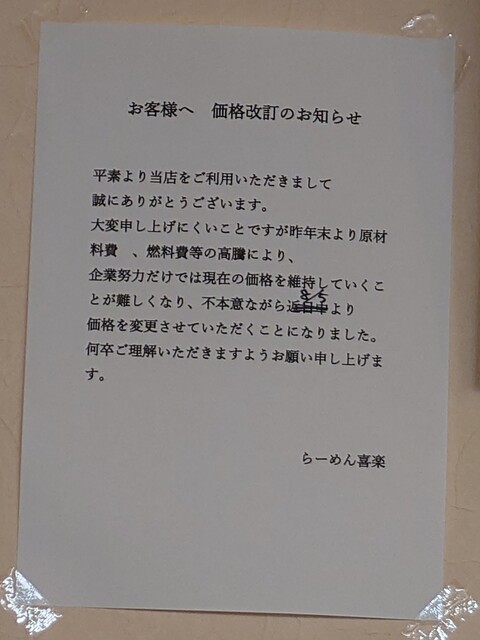 お客様へ　価格改訂のお知らせ
平素より当店をご利用いただきまして
誠にありがとうございます。
大変申し上げにくいことですが昨年末より原材
料費　、燃料費等の高騰により、
企業努力だけでは現在の価格を維持していくこ
8/5
とが難しくなり、不本意ながら近日中より
価格を変更させていただくことになりました。
何卒ご理解いただきますようお願い申し上げま
す。
らーめん喜楽